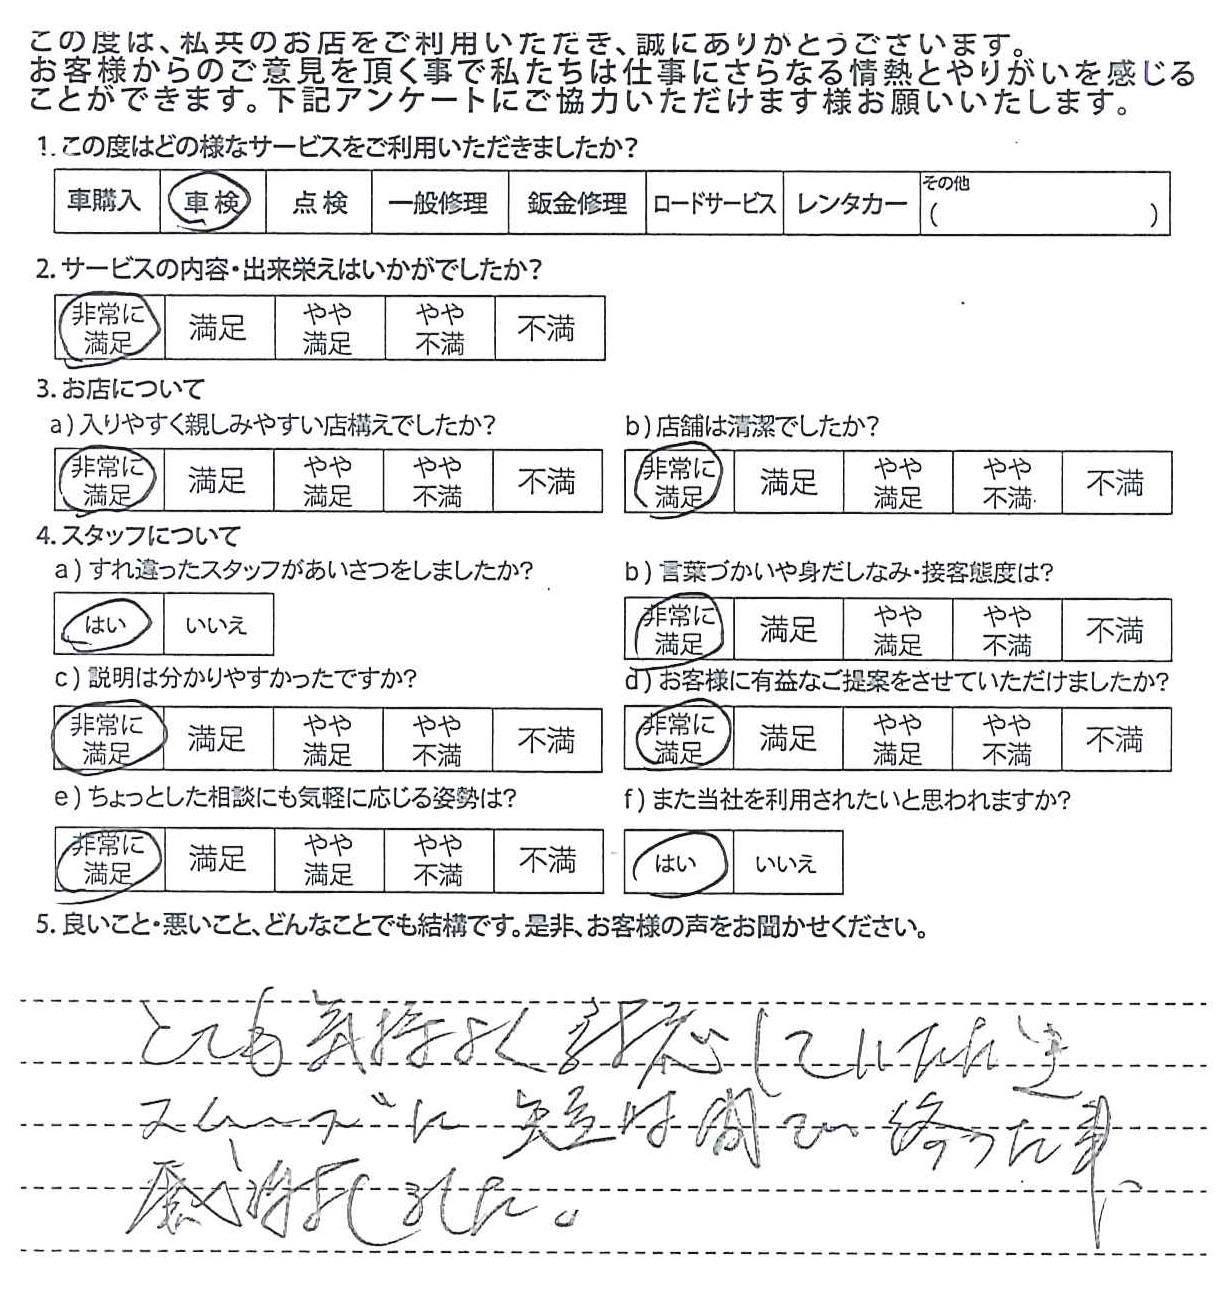 この度は、私共のお店をご利用いただき、誠にありがとうございます。
お客様からのご意見を頂く事で私たちは仕事にさらなる情熱とやりがいを感じる
ことができます。下記アンケートにご協力いただけます様お願いいたします。
1. この度はどの様なサービスをご利用いただきましたか?
車購入 車検 点検 一般修理 鈑金修理 ロードサービス レンタカー その他 ( )
2. サービスの内容・出来栄えはいかがでしたか?
非常に満足 満足 やや満足 やや不満 不満
3. お店について
a) 入りやすく親しみやすい店構えでしたか?
非常に満足 満足 やや満足 やや不満 不満
b) 店舗は清潔でしたか?
非常に満足 満足 やや満足 やや不満 不満
4. スタッフについて
a) すれ違ったスタッフがあいさつをしましたか?
はい いいえ
b) 言葉づかいや身だしなみ・接客態度は?
非常に満足 満足 やや満足 やや不満 不満
c) 説明は分かりやすかったですか?
非常に満足 満足 やや満足 やや不満 不満
d) お客様に有益なご提案をさせていただけましたか?
非常に満足 満足 やや満足 やや不満 不満
e) ちょっとした相談にも気軽に応じる姿勢は?
非常に満足 満足 やや満足 やや不満 不満
f) また当社を利用されたいと思われますか?
はい いいえ
5. 良いこと・悪いこと、どんなことでも結構です。是非、お客様の声をお聞かせください。
とても気持よく対応していただき
スムーズに短時間で終った事、
感謝致しました。